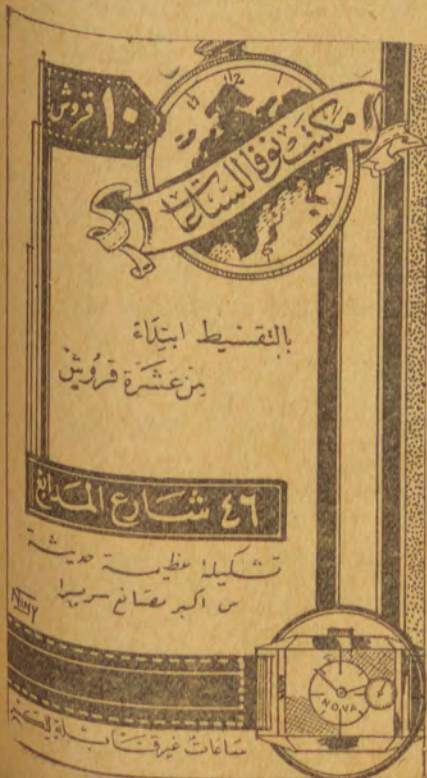 ١٠ قروش
١٢
مكتب نوفا للساعات
بالتقسيط ابتداء
من عشرة قروش
٤٦ شارع المدابغ
تشكيلة عظيمة حديثة
من اكبر مصانع سويسرا
NINY
NOVA
ساعات غير قابلة للكسر